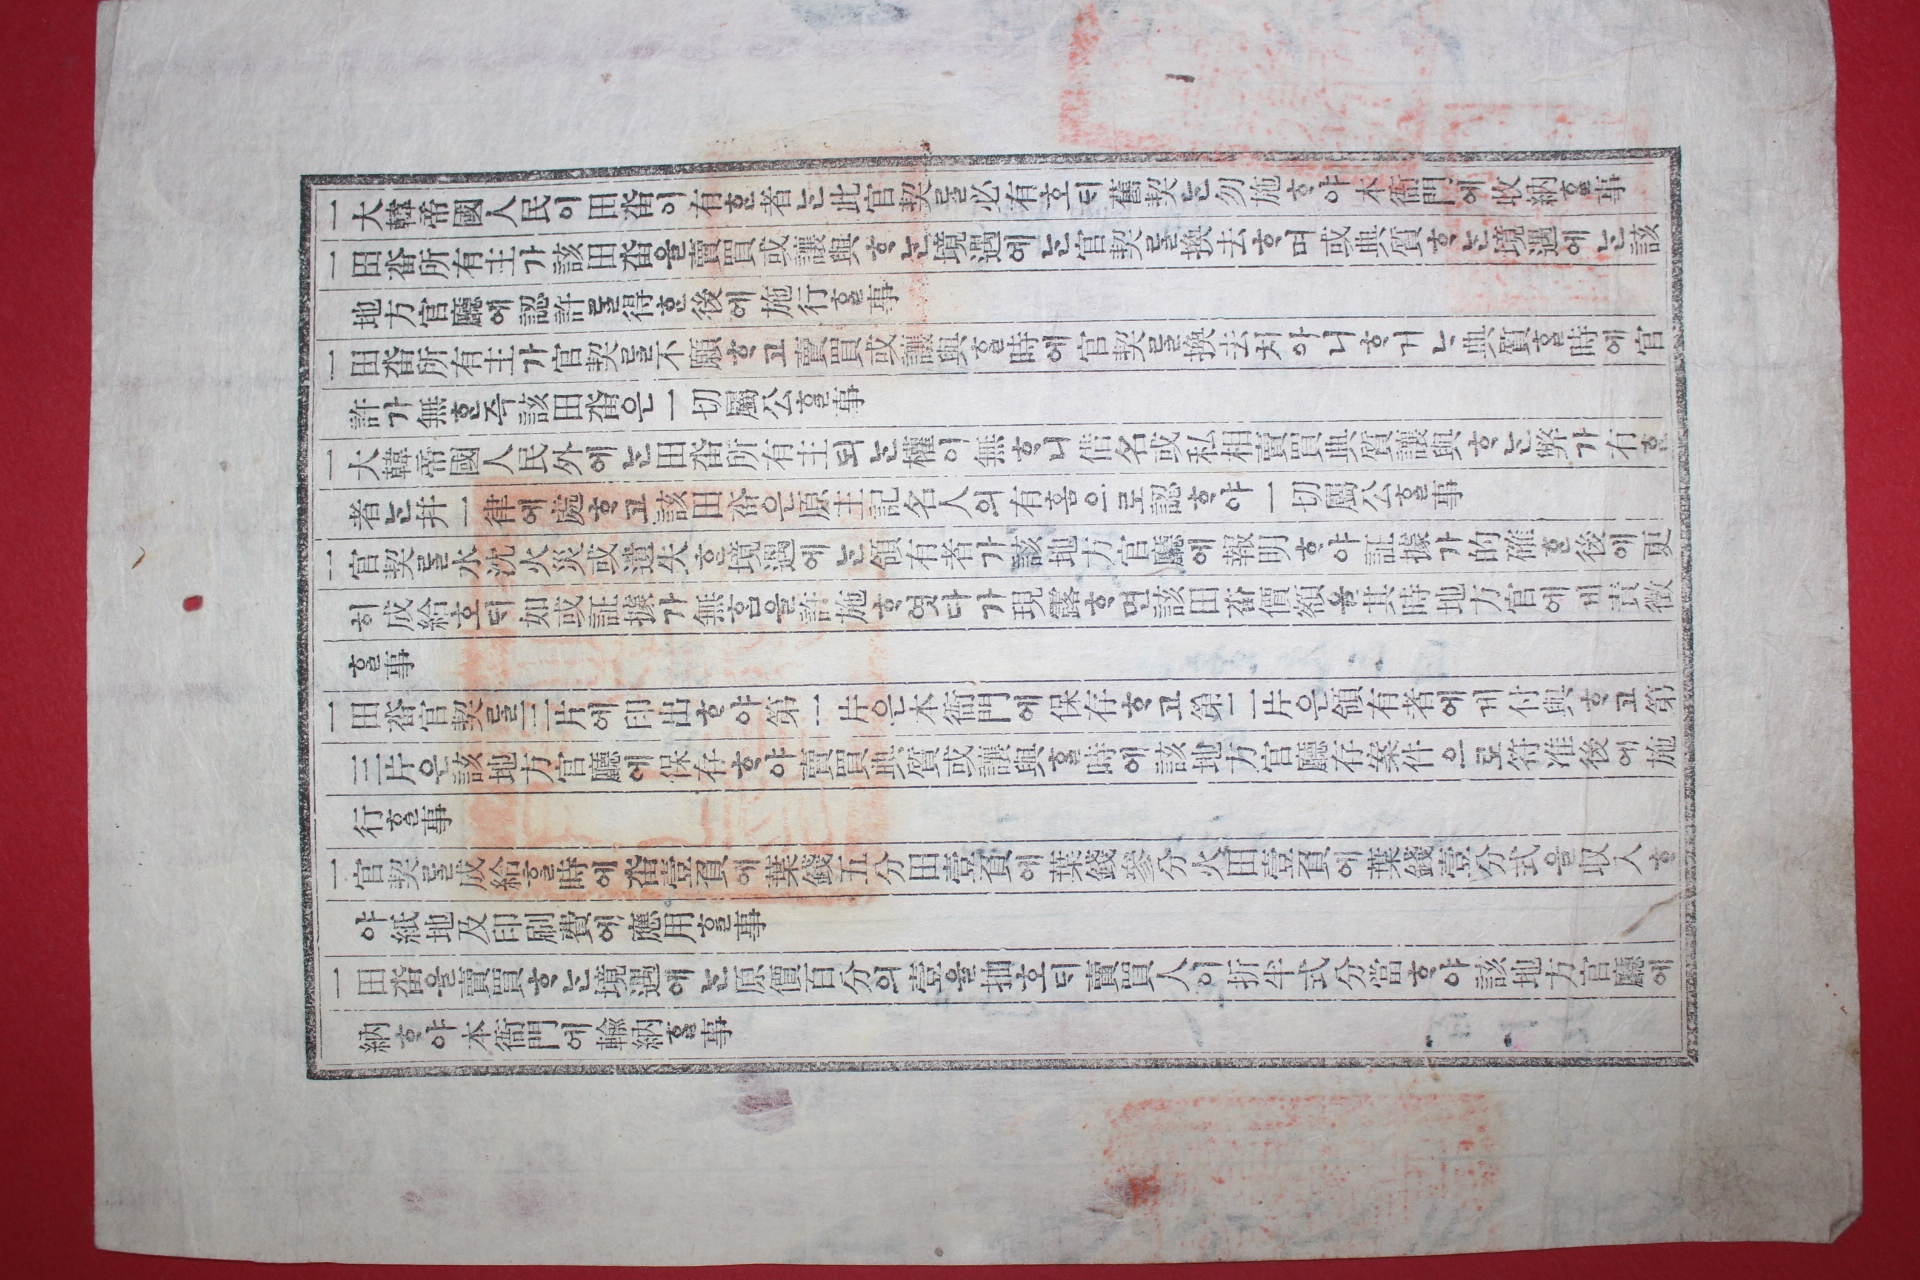 一大韓帝國人民이田畓이有ᄒᆞᆫ者ᄂᆞᆫ此官契ᄅᆞᆯ必有호ᄃᆡ舊契ᄂᆞᆫ勿施ᄒᆞ야本衙門에收納ᄒᆞᆯ事
一田畓所有主가該田畓을賣買或讓與ᄒᆞᄂᆞᆫ境遇에ᄂᆞᆫ官契ᄅᆞᆯ換去ᄒᆞ며或典質ᄒᆞᄂᆞᆫ境遇에ᄂᆞᆫ該
地方官廳에認許ᄅᆞᆯ得ᄒᆞᆫ後에施行ᄒᆞᆯ事
一田畓所有主가官契ᄅᆞᆯ不願ᄒᆞ고賣買或讓與ᄒᆞᆯ時에官契ᄅᆞᆯ換去치아니ᄒᆞ거ᄂᆞ典質ᄒᆞᆯ時에官
許가無ᄒᆞᆫ즉該田畓은一切屬公ᄒᆞᆯ事
一大韓帝國人民外에ᄂᆞᆫ田畓所有主되ᄂᆞᆫ權이無ᄒᆞ니借名或私相賣買典質讓與ᄒᆞᄂᆞᆫ弊가有ᄒᆞᆫ
者ᄂᆞᆫ幷一律에處ᄒᆞ고該田畓은原主記名人의有ᄒᆞᆷ으로認ᄒᆞ야一切屬公ᄒᆞᆯ事
一官契ᄅᆞᆯ水沈火災或遺失ᄒᆞᆫ境遇에ᄂᆞᆫ領有者가該地方官廳에報明ᄒᆞ야証據가的確ᄒᆞᆫ後에更
히成給호ᄃᆡ如或証據가無ᄒᆞᆷ을許施ᄒᆞ엿다가現露ᄒᆞ면該田畓價額을其時地方官에게責徵
ᄒᆞᆯ事
一田畓官契ᄅᆞᆯ三片에印出ᄒᆞ야第一片은本衙門에保存ᄒᆞ고第二片은領有者에게付與ᄒᆞ고第
三片은該地方官廳에保存ᄒᆞ야賣買典質或讓與ᄒᆞᆯ時에該地方官廳存案件으로符准後에施
行ᄒᆞᆯ事
一官契ᄅᆞᆯ成給ᄒᆞᆯ時에畓壹負에葉錢五分田壹負에葉錢參分火田壹負에葉錢壹分式을収入ᄒᆞ
야紙地及印刷費에應用ᄒᆞᆯ事
一田畓을賣買ᄒᆞᄂᆞᆫ境遇에ᄂᆞᆫ原價百分의壹을抽호ᄃᆡ賣買人이折半式分當ᄒᆞ야該地方官廳에
納ᄒᆞ야本衙門에輸納ᄒᆞᆯ事